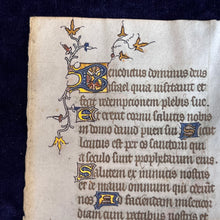 Benedictus dominus deus
israel quia visitavit et
fecit redempcionem plebis sue.
Et erexit cornu salutis nobis
in domo david pueri sui
locutus est per os sanctorum qui
a seculo sunt prophetarum eius
Salutem ex inimicis nostris
et de manu omnium qui oderunt
nos Ad faciendam misericor
diam cum patribus nostris